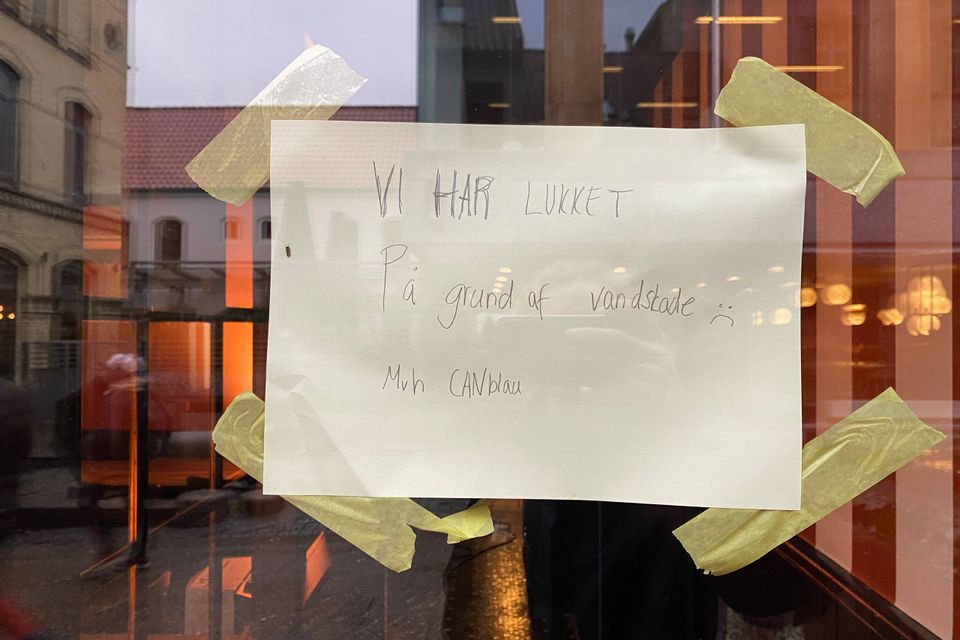 VI HAR LUKKET
På grund af vandskade :(
Mvh CANblau